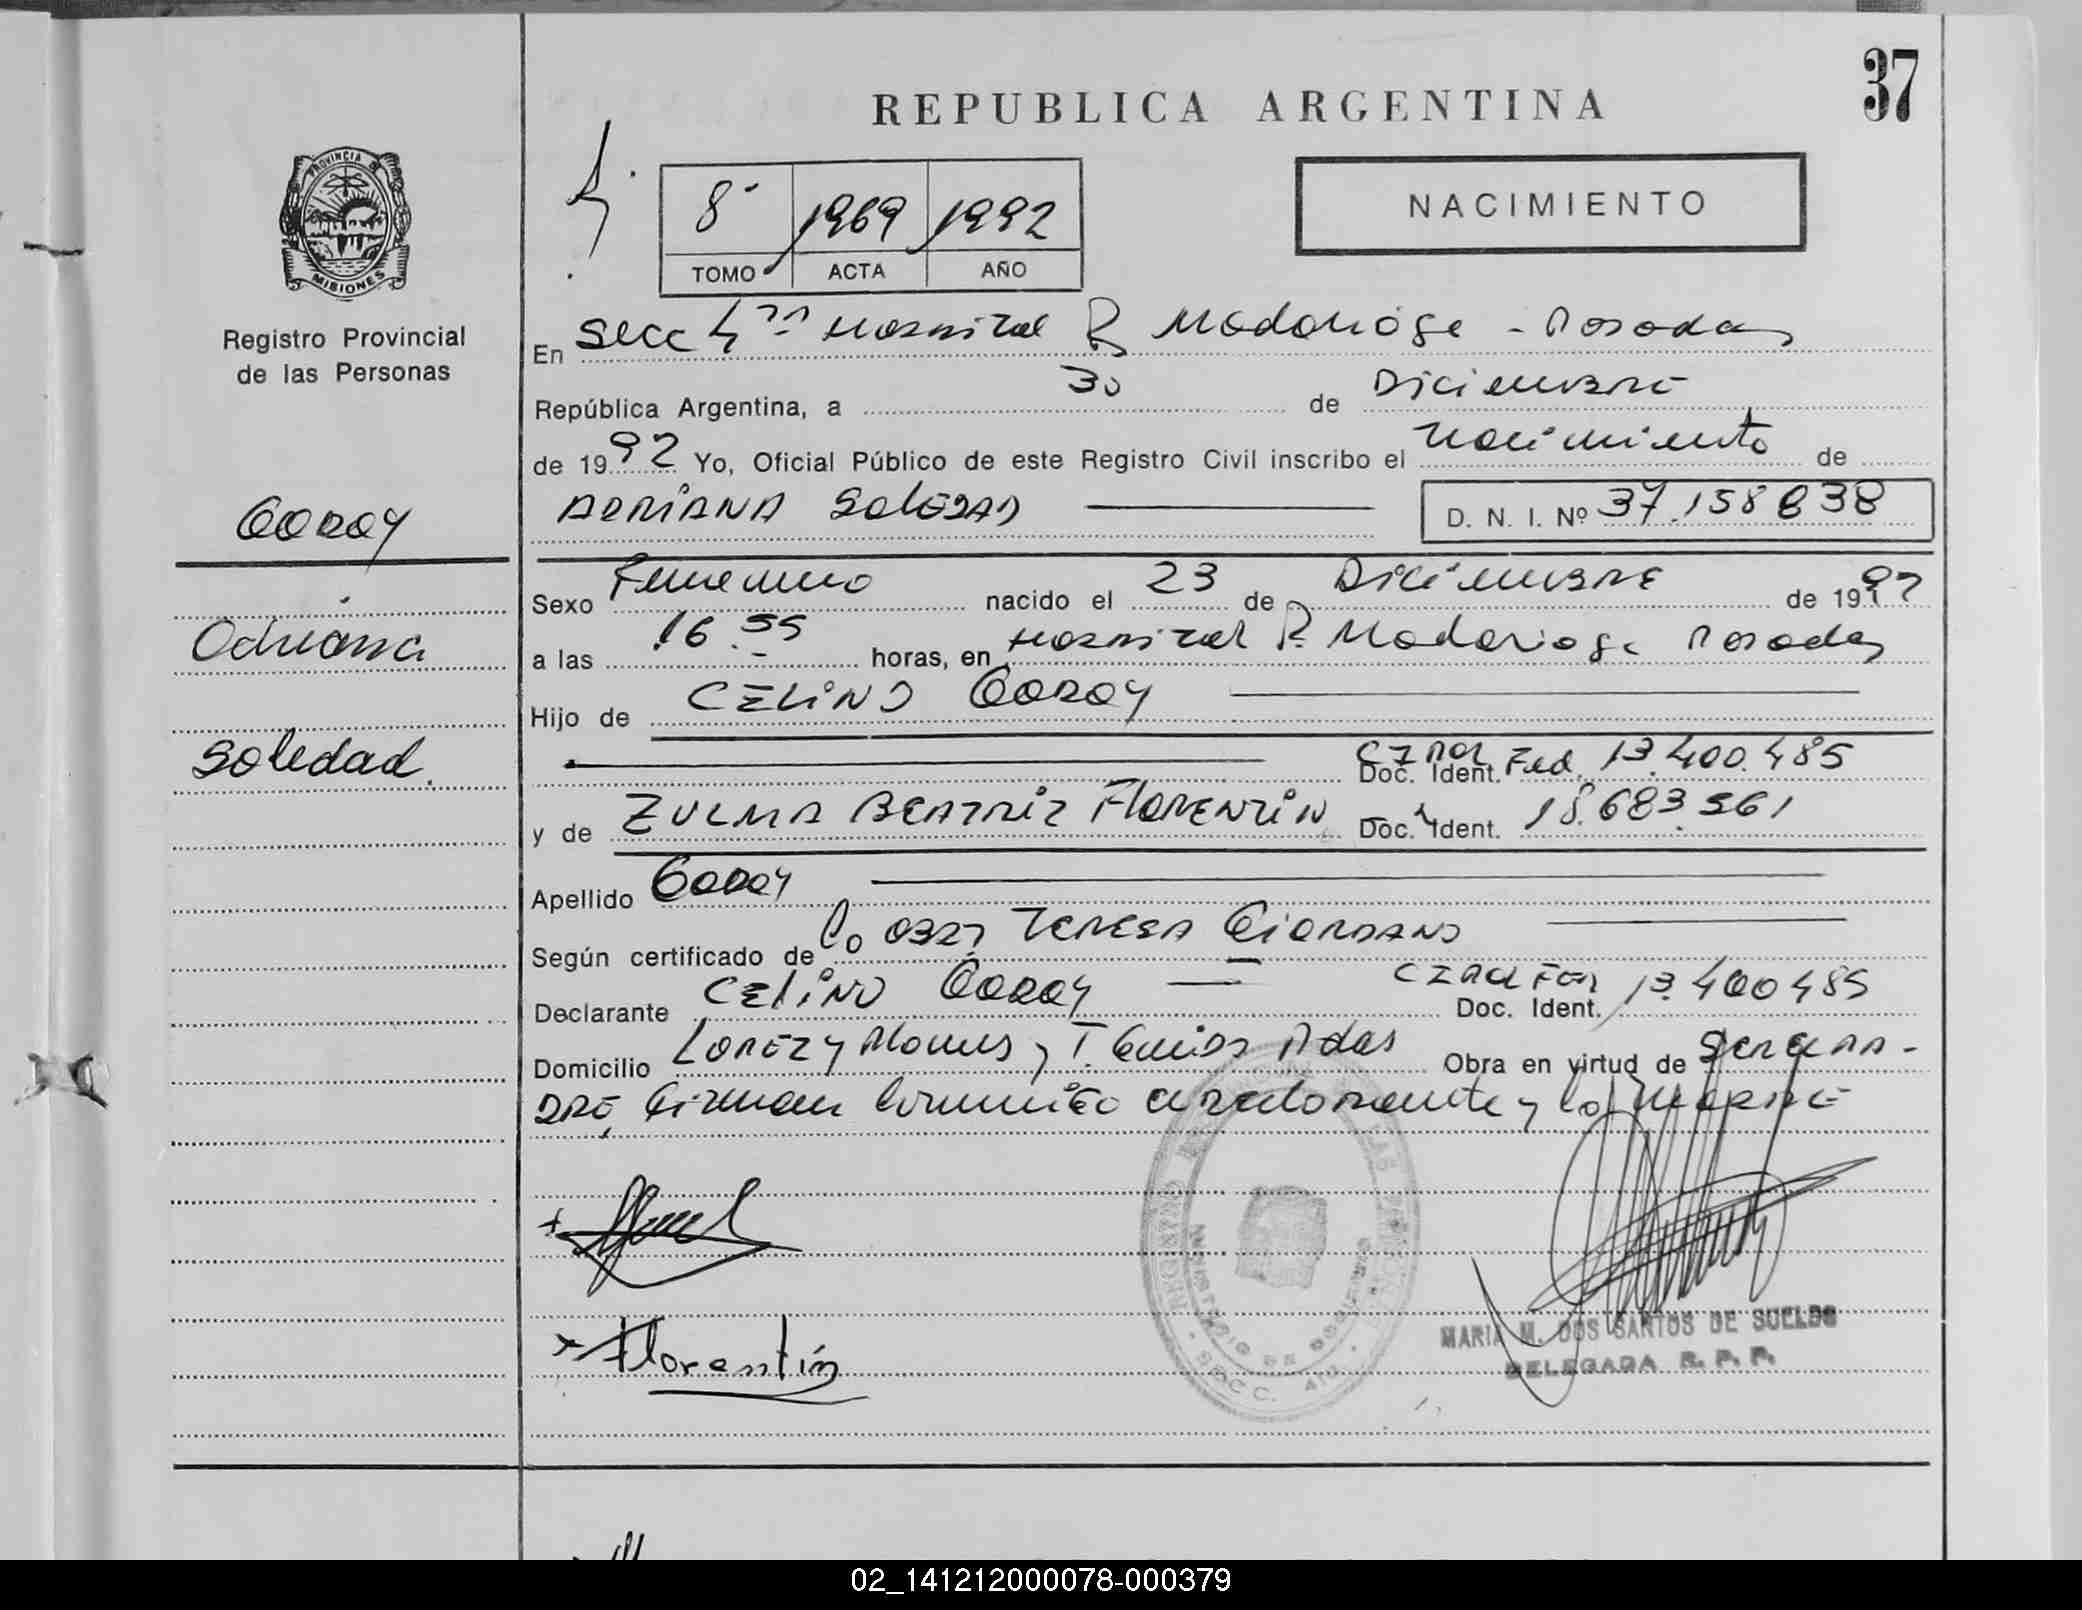 37
REPUBLICA ARGENTINA
PROVINCIA DE
MISIONES
8 1969 1992
TOMO ACTA AÑO
NACIMIENTO
Registro Provincial
de las Personas
En Secc 4 Hospital R Madariaga - Posadas
República Argentina, a 30 de Diciembre
de 1992 Yo, Oficial Público de este Registro Civil inscribo el Nacimiento de
ADRIANA SOLEDAD D. N. I. Nº 37.158838
GODOY
Sexo Femenino nacido el 23 de Diciembre de 1992
Adriana
a las 16.55 horas, en Hospital R. Madariaga Posadas
Hijo de CELINO GODOY
Soledad.
Doc. Ident. Fed. 13.400.485
y de ZULMA BEATRIZ FLORENTIN Doc. Ident. 18.683.561
Apellido GODOY
Según certificado de TERESA GIORDANO
Declarante CELINO GODOY Doc. Ident. 13.400485
Domicilio y Obra en virtud de
y la
Florentín
REGISTRO PROVINCIAL DE LAS PERSONAS
MINISTERIO DE GOBIERNO
SECC. 4ta
MARIA M. DOS SANTOS DE SUELDO
DELEGADA R. P. P.
02_141212000078-000379